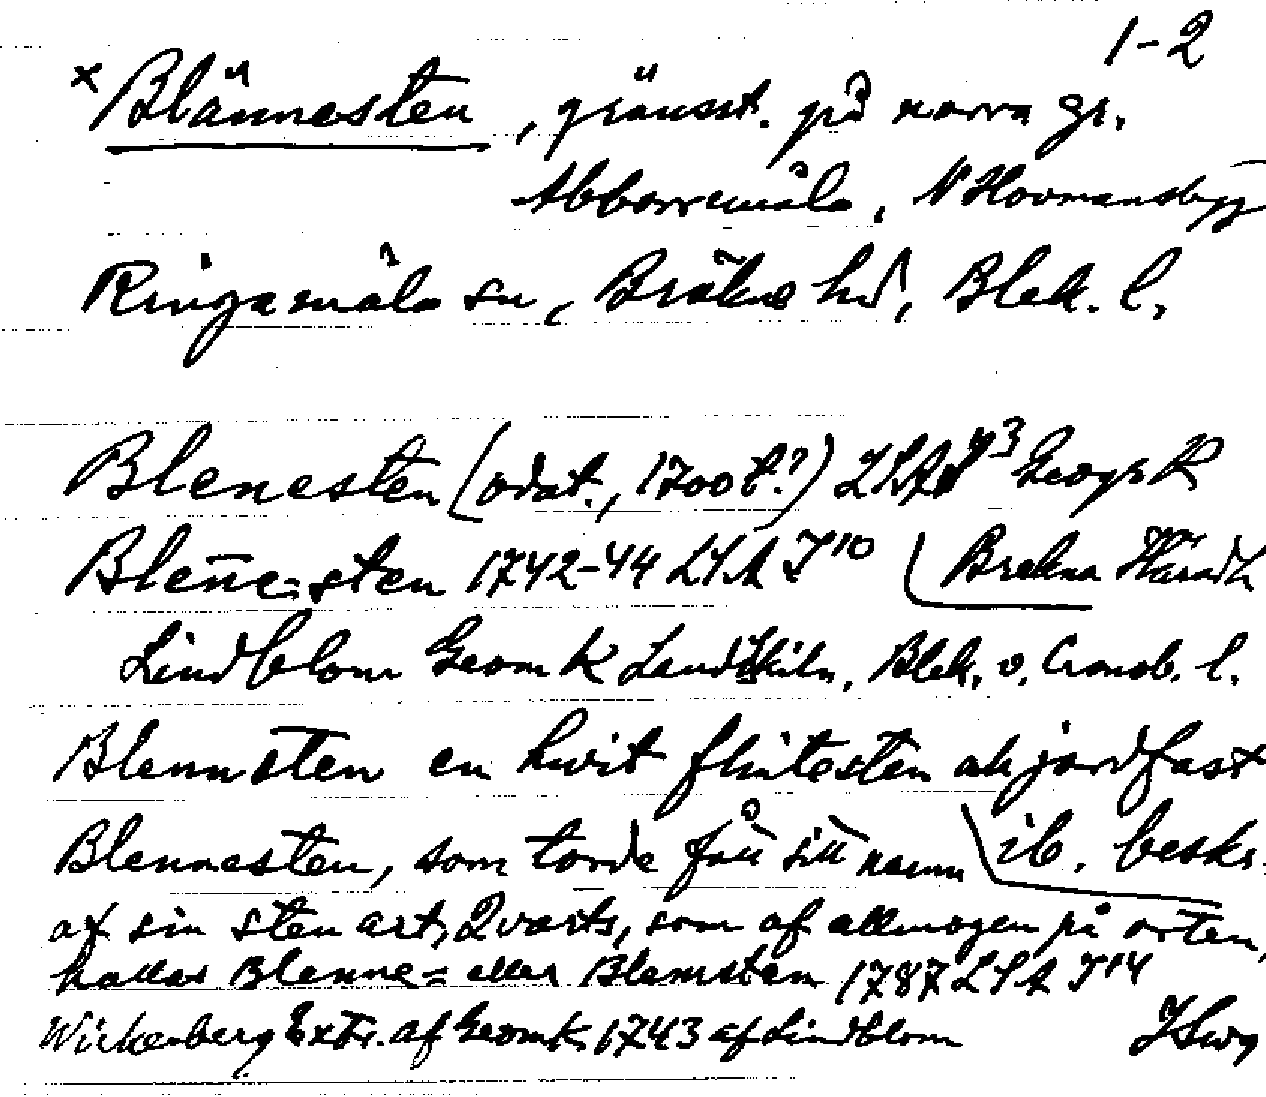 1-2
x Blännesten, gränsst. på norra gr.
Abborremåla, N Hovmansbygg
Ringamåla sn, Bräkne hd, Blek. l.
Blenesten (odat., 1700t.?) LSA Geogr K
Blenne-sten 1742-44 LSA I'10 Brekna Häradh
Lindblom Geom K Landtskiln. Blek. o. Cronob. l.
Blennsten en hwit flintesten ak jordfast
Blennesten, som torde fått sitt namn ib. beskr.
af sin sten art, Qvarts, som af allmogen på orten,
kallas Blenne= eller Blemsten 1787 LSA I'14
Wickenberg Extr. af Geom K. 1743 af Lindblom